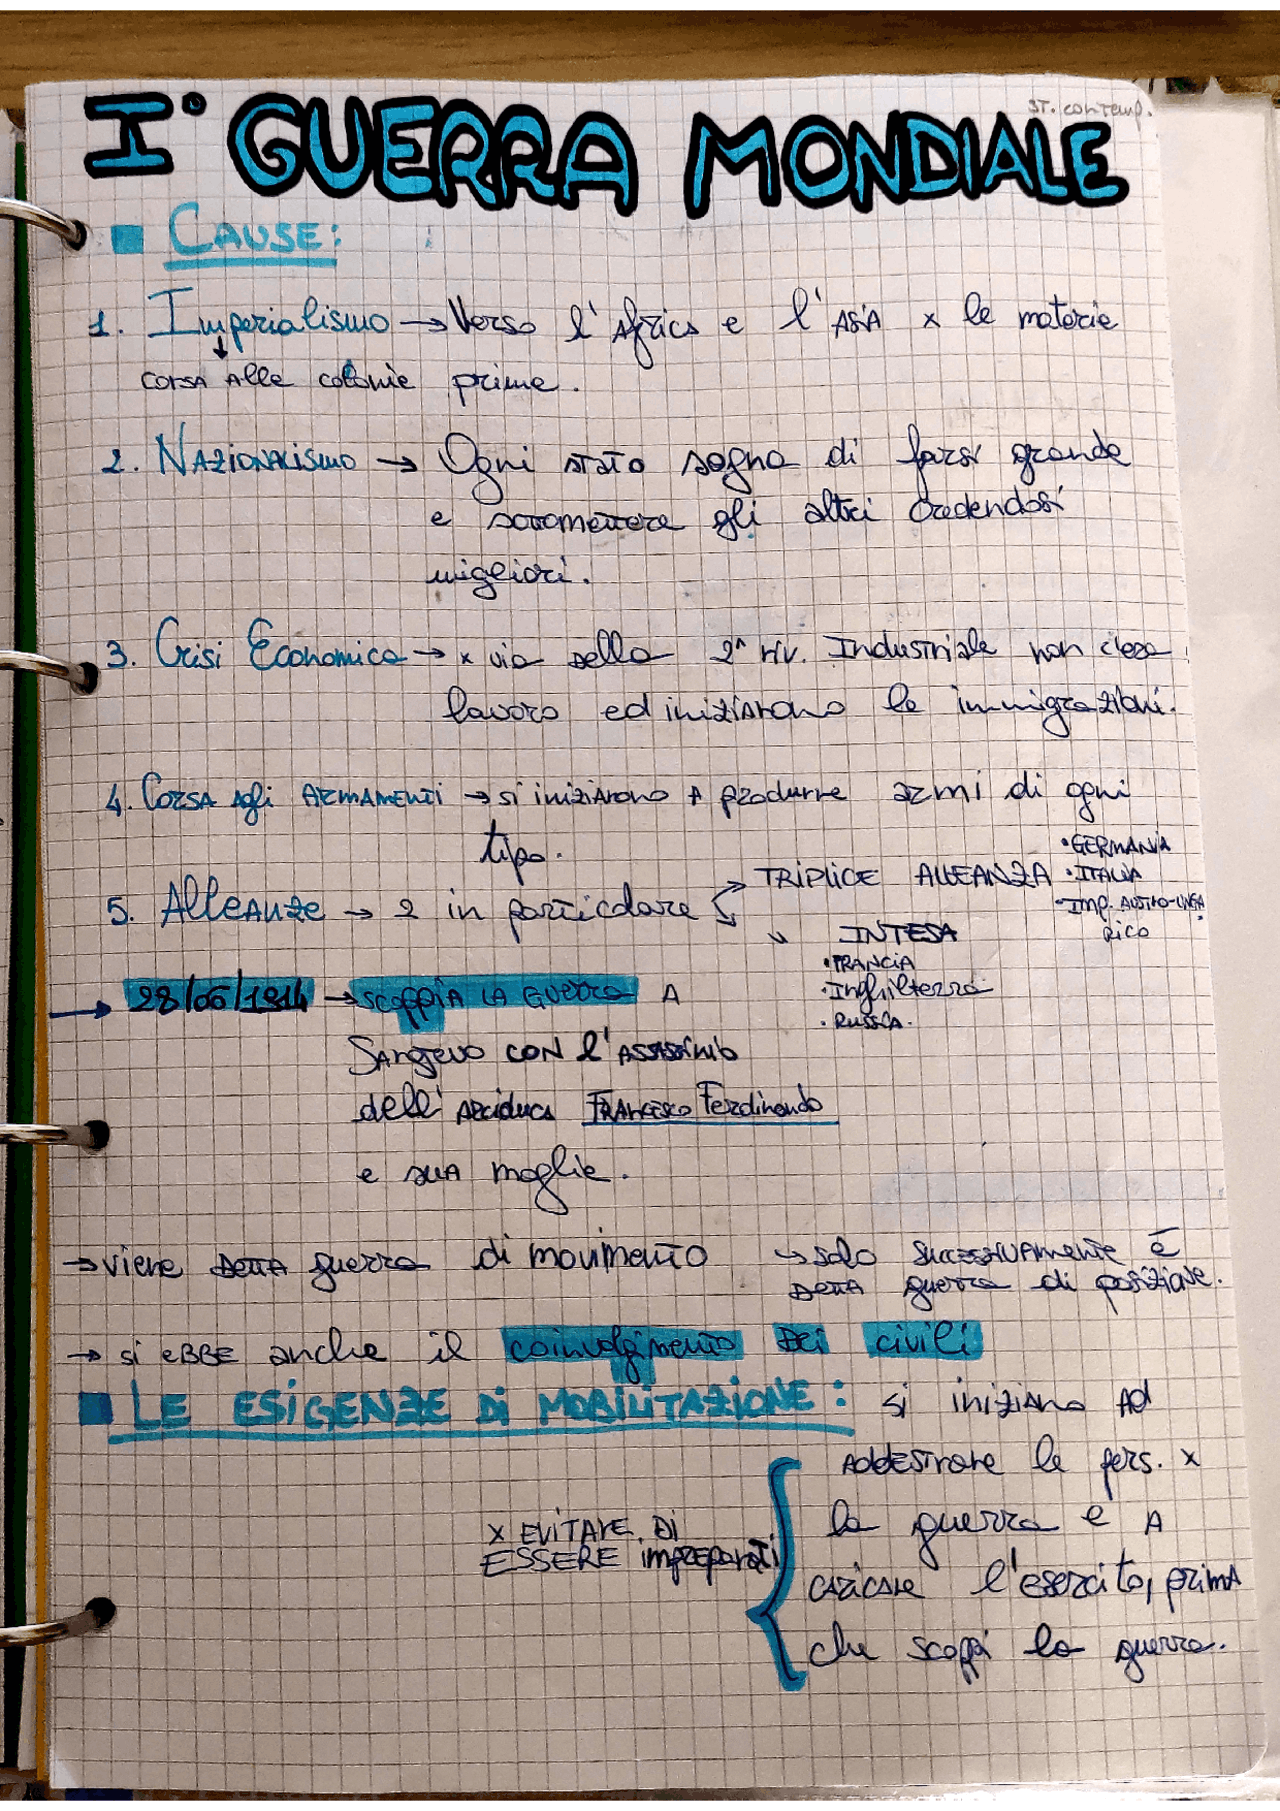 ST. contemp.
I° GUERRA MONDIALE
CAUSE:
1. Imperialismo → Verso l'Africa e l'ASIA x le materie
corsa alle colonie prime.
2. NAZIONALISMO → Ogni stato sogna di farsi grande
e sottomettere gli altri credendosi
migliori.
3. Crisi Economica → x via della 2^ riv. Industriale non c'era
lavoro ed iniziarono le immigrazioni.
4. Corsa agli ARMAMENTI → si iniziarono a produrre armi di ogni
tipo.
5. Alleanze → 2 in particolare
TRIPLICE ALLEANZA
• GERMANIA
• ITALIA
• Imp. AUSTRO-UNGA
RICO
INTESA
• FRANCIA
• Inghilterra
• RUSSIA.
→ 28/06/1914 → SCOPPIA LA GUERRA A
Sarajevo CON l'ASSASSINIO
dell'Arciduca Francesco Ferdinando
e sua moglie.
→ viene DETTA guerra di movimento → solo SUCCESSIVAMENTE è
DETTA guerra di posizione.
→ si EBBE anche il coinvolgimento Dei civili
LE ESIGENZE DI MOBILITAZIONE: si iniziano AD
ADDESTRARE le pers. x
la guerra e A
CARICARE l'esercito, prima
che scoppi la guerra.
x EVITARE DI
ESSERE impreparati